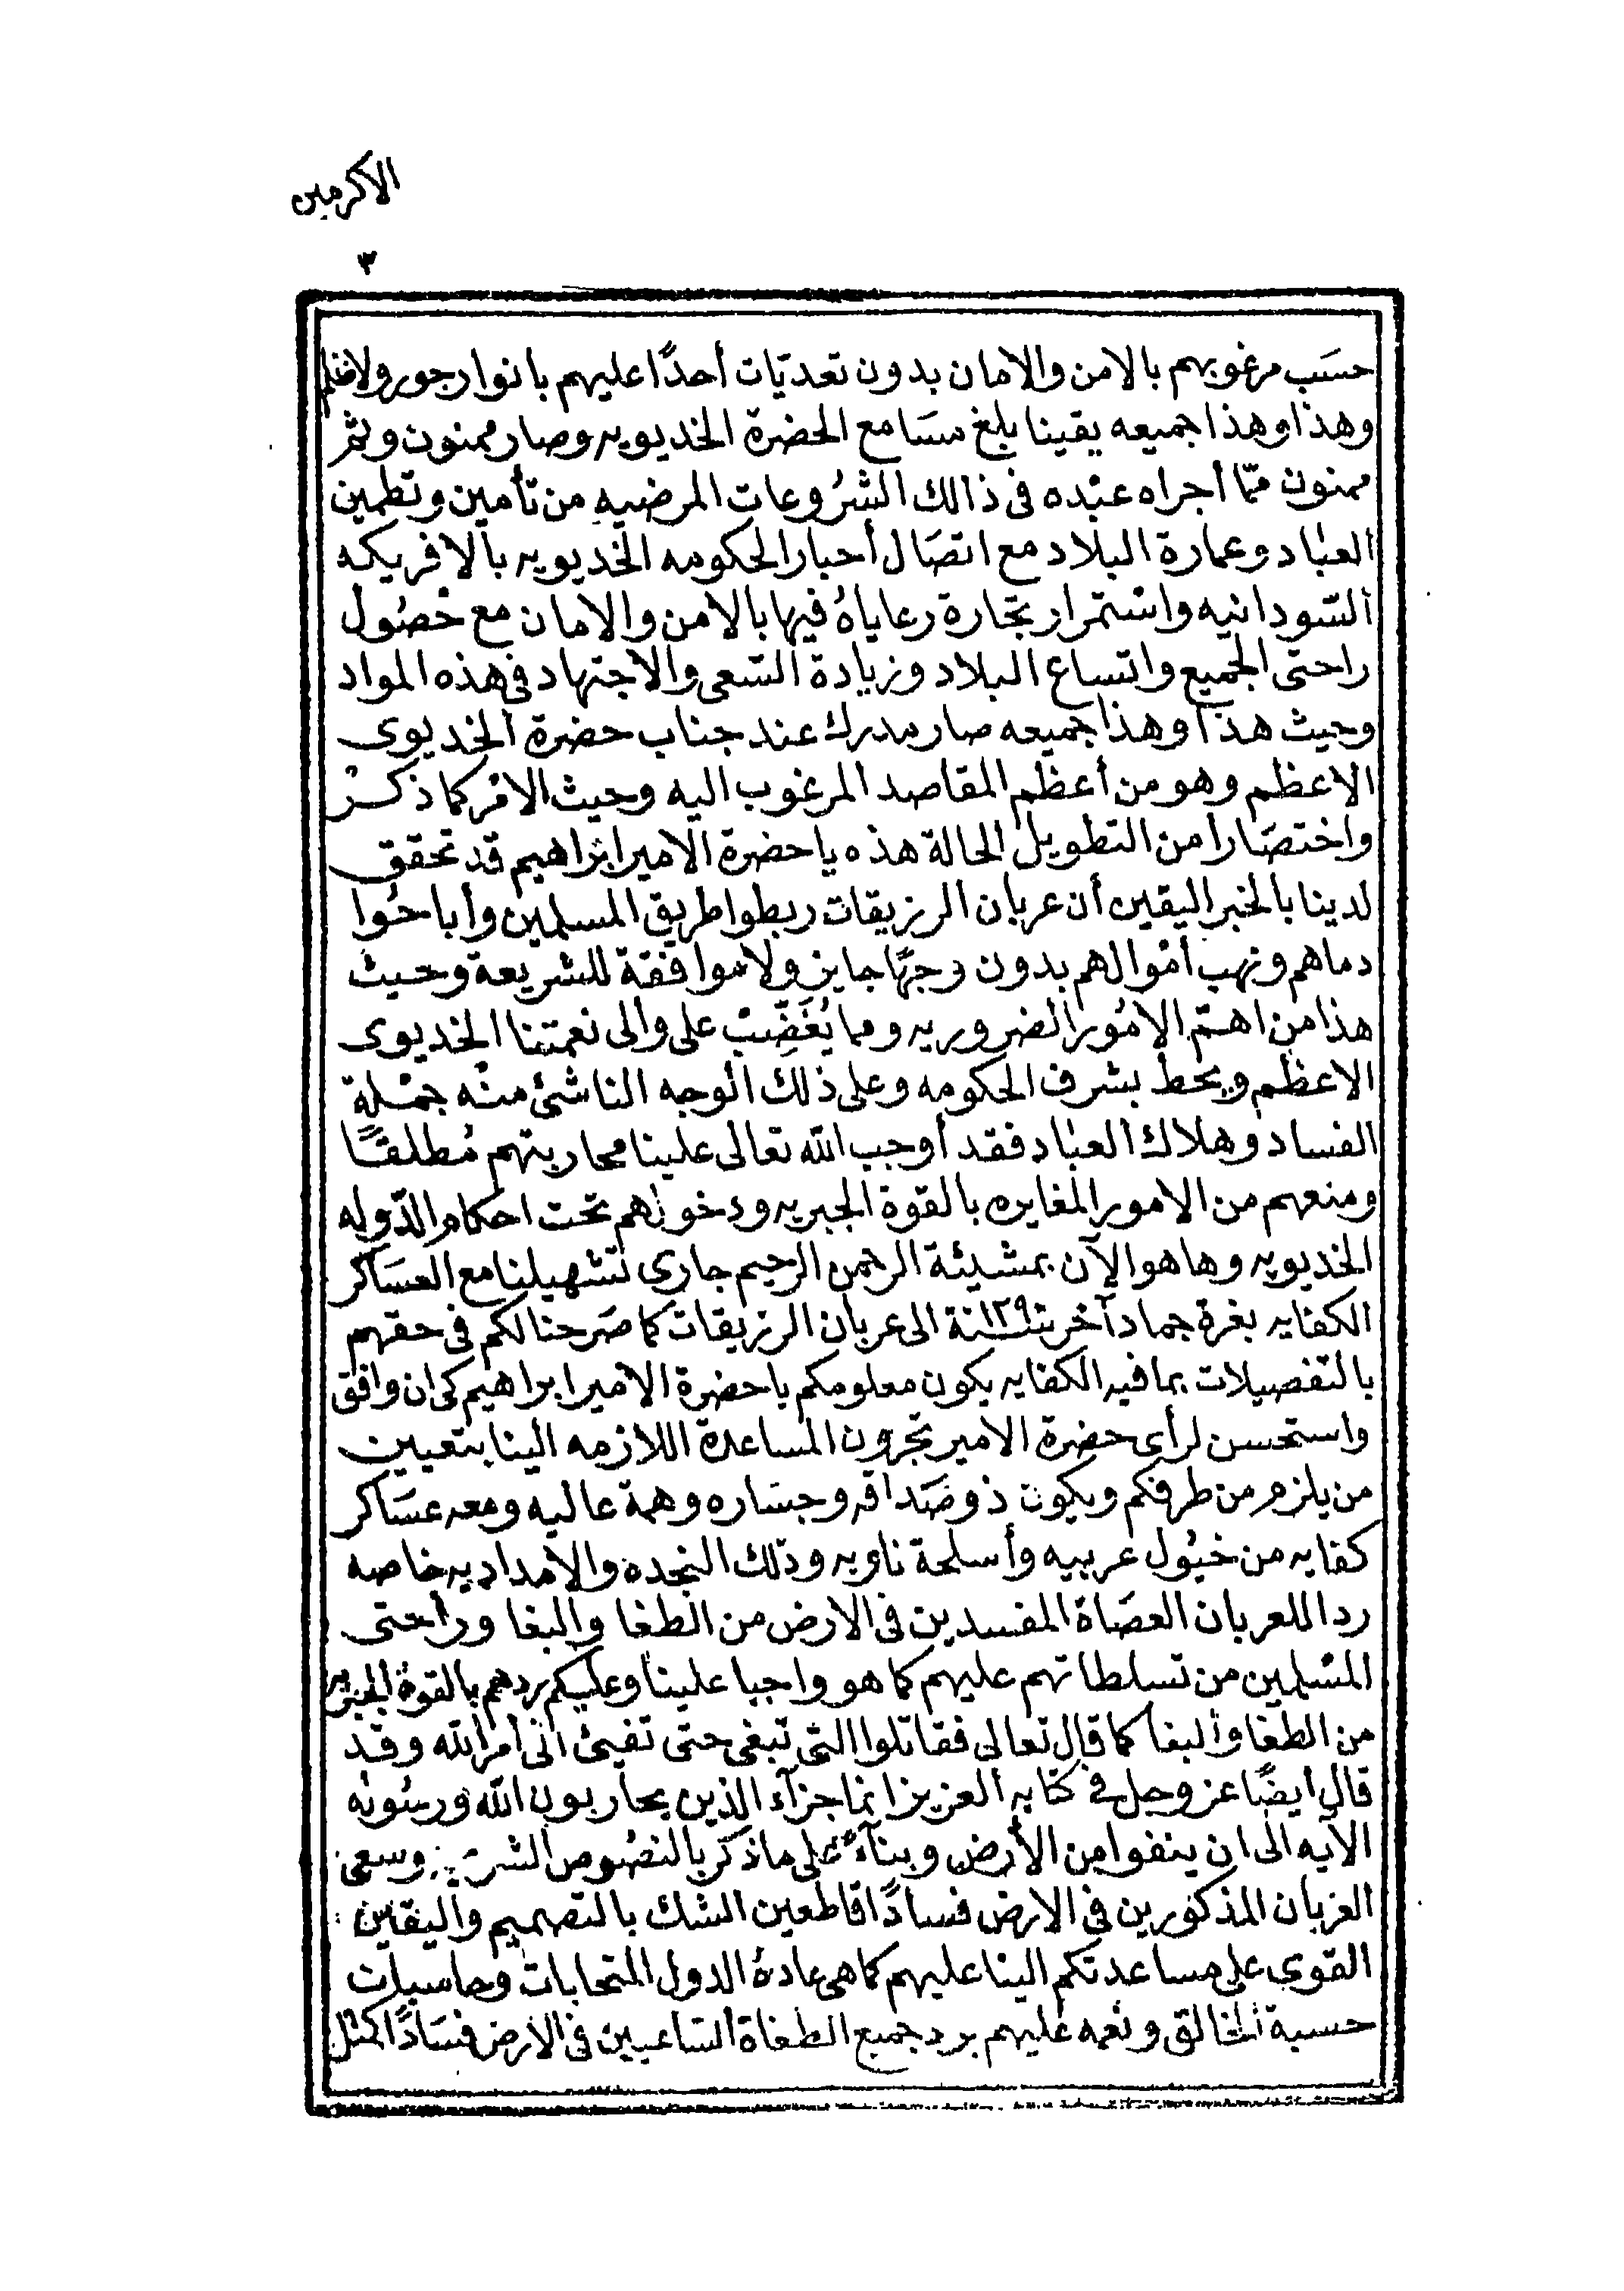 الاكرمين
٣
حسَب مرغوبهم بالامن والامان بدون تعديّات أحدًا عليهم بانوار جور ولا ظلم
وهذا وهذا جميعه يقينا بلغ مسَامع الحضرة الخديويه وصار ممنون وثمّر
ممنون ممّا أجراه عبْده فى ذالك الشرُوعات المرضيه من تأمين وتطمين
العبَاد وعمارة البلاد مع اتصَال أخبار الحكومه الخديويه بالافريكه
السّودانيه واسْتمرار تجارة رعاياهُ فيها بالامن والامان مع حُصُول
راحتى الجميع واتساع البلاد وزيادة السّعى والاجتهاد فى هذه المواد
وحيث هذا وهذا جميعه صار مدرك عند جناب حضرة الخديوى
الاعظم وهو من أعظم المقاصد المرغوب اليه وحيث الامْر كما ذكر
واختصَارا من التطويل الحالة هذه ياحضرة الامير ابراهيم قد تحقق
لدينا بالخبر اليقين أن عربان الرزيقات ربطوا طريق المسلمين وأباحُوا
دماهم ونهب أمْوالهم بدون وجهًا جايز ولا موافقة للشريعة وحيث
هذا من اهمّ الامُور الضروريه ومما يُغَضِّبْ على والى نعمتنا الخديوى
الاعظم ويحط بشرف الحكومه وعلى ذلك الوجه الناشئ منْه جمْلة
الفساد وهلاك العبَاد فقد أوجب الله تعالى علينا محاربتهم مُطلقًا
ومنعهم من الامور المغايره بالقوة الجبريه ودخولهم تحت احكام الدّوله
الخديويه وها هو الآن بمشيئة الرحمن الرحيم جارى تشهيلنا مع العسَاكر
الكفايه بغرة جماد آخر سنة ١٢٩٠ الى عربان الرزيقات كما صَرحنا لكم فى حقهم
بالتفصيلات بما فيه الكفايه يكون معلومكم ياحضرة الامير ابراهيم كى ان وافق
واستحسن لرأى حضرة الامير تجرون المساعدة اللازمه الينا بتعيين
من يلزم من طرفكم ويكون ذو صَداقه وجسَاره وهمة عاليه ومعه عسَاكر
كفايه من خيُول عربيه وأسلحة ناريه وتلك النجده والامداديه خاصه
ردا للعربان العصَاة المفسدين فى الارض من الطغا والبغا وراحتى
المسْلمين من تسلطاتهم عليهم كما هو واجبا علينا وعليكم ردهم بالقوة الجبريه
من الطغا والبغا كما قال تعالى فقاتلوا التى تبغى حتى تفيئ الى أمر الله وقد
قال أيضًا عز وجل فى كتابه العزيز انما جزآء الذين يحاربون الله ورسُوله
الآيه الى ان ينفوا من الأرض وبنآءً على ما ذكر بالنصُوص الشرعيه وسعى
العربان المذكورين فى الارض فسادًا قاطعين الشك بالتصميم واليقين
القوى على مساعدتكم الينا عليهم كما هى عادةُ الدول المتحابات وحاسبات
حسبة الخالق ونعمه عليهم برد جميع الطغاة السّاعيين فى الارض فسَادًا كمثل